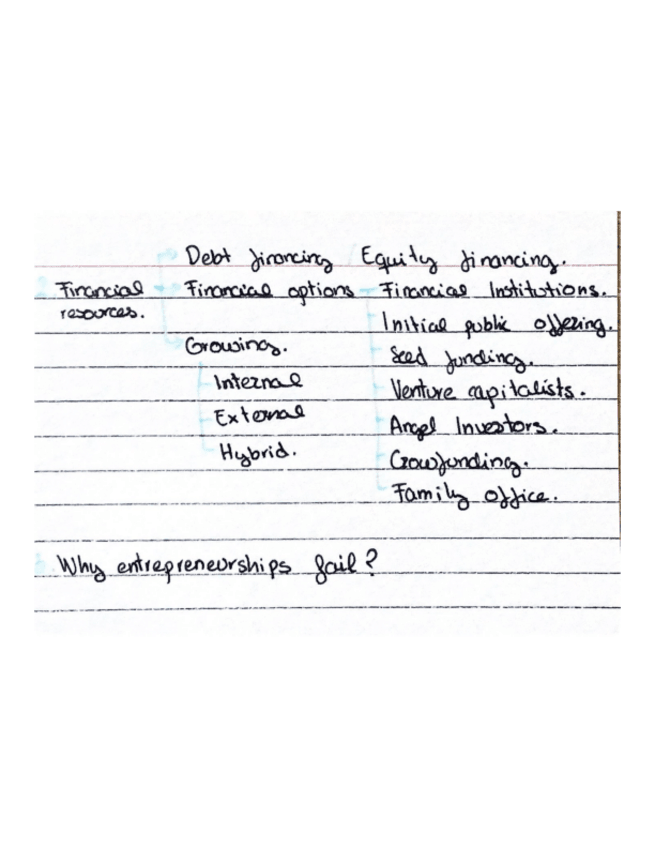 Debt financing / Equity financing.
Financial Financial options Financial Institutions.
resources. Initial public offering.
Growing. Seed funding.
Internal Venture capitalists.
External Angel Investors.
Hybrid. Crowfunding.
Family office.
Why entrepreneurships fail?